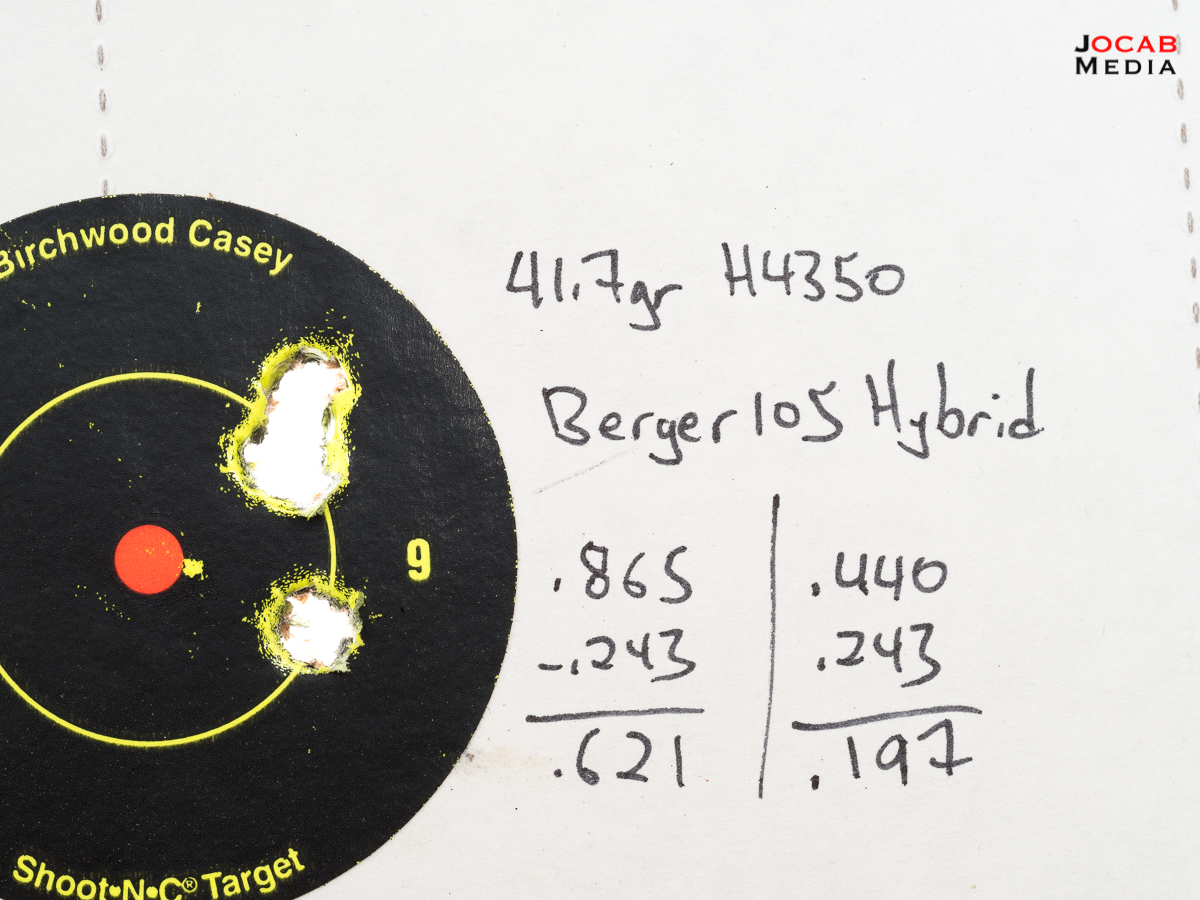 JOCAB
MEDIA
Birchwood Casey
41.7gr H4350
Berger 105 Hybrid
9
.865
-.243
.621
.440
.243
.197
Shoot•N•C® Target